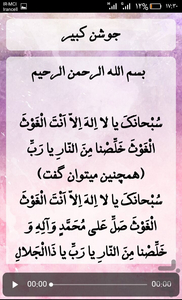 IR-MCI
Irancell
۱۴%
۱۷:۳۰
جوشن کبیر
بسم الله الرحمن الرحیم
سُبْحانَکَ یا لا اِلهَ اِلاّ اَنْتَ الْغَوْثَ
الْغَوْثَ خَلِّصْنا مِنَ النّارِ یا رَبِّ
(همچنین میتوان گفت)
سُبْحانَکَ یا لا اِلهَ اِلاّ اَنْتَ الْغَوْثَ
الْغَوْثَ صَلِّ عَلی مُحَمَّدٍ وَآلِهِ وَ
خَلِّصْنا مِنَ النّارِ یا رَبِّ یا ذَاالْجَلالِ
00:00
00:00